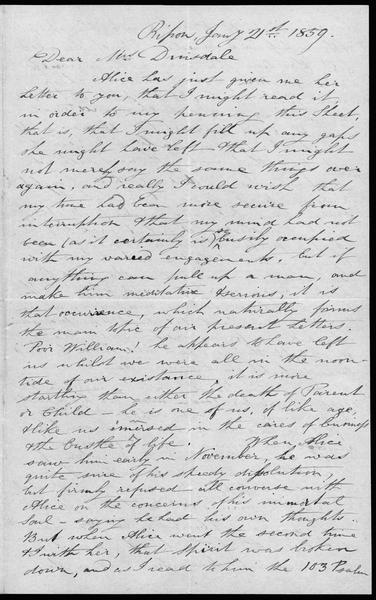 Ripon, Jany 21st. 1859.
Dear Mrs Dinsdale
Alice has just given me her
letter to you, that I might read it,
in order to my penning this Sheet,
that is, that I might fill up any gaps
she might have left & that I might
not merely say the same things over
again, and really I could wish that
my time had been more secure from
interruption & that my mind had not
been (as it certainly is) busily occupied
with my varied engagements, but if
anything can pull up a man, and
make him meditative & serious, it is
that occurrence, which naturally forms
the main topic of our present letters.
Poor William! he appears to have left
us whilst we were all in the noon-
tide of our existance, it is more
startling than either the death of Parent
or Child – he is one of us, of like age,
& like us immersed in the cares of business
& the bustle of life. When Alice
saw him early in November, he was
quite sure of his speedy dissolution,
but firmly refused all converse with
Alice on the concerns of his immortal
soul – saying he had his own thoughts.
But when Alice went the second time
& I with her, that Spirit was broken
down, and as I read to him the 103 Psalm